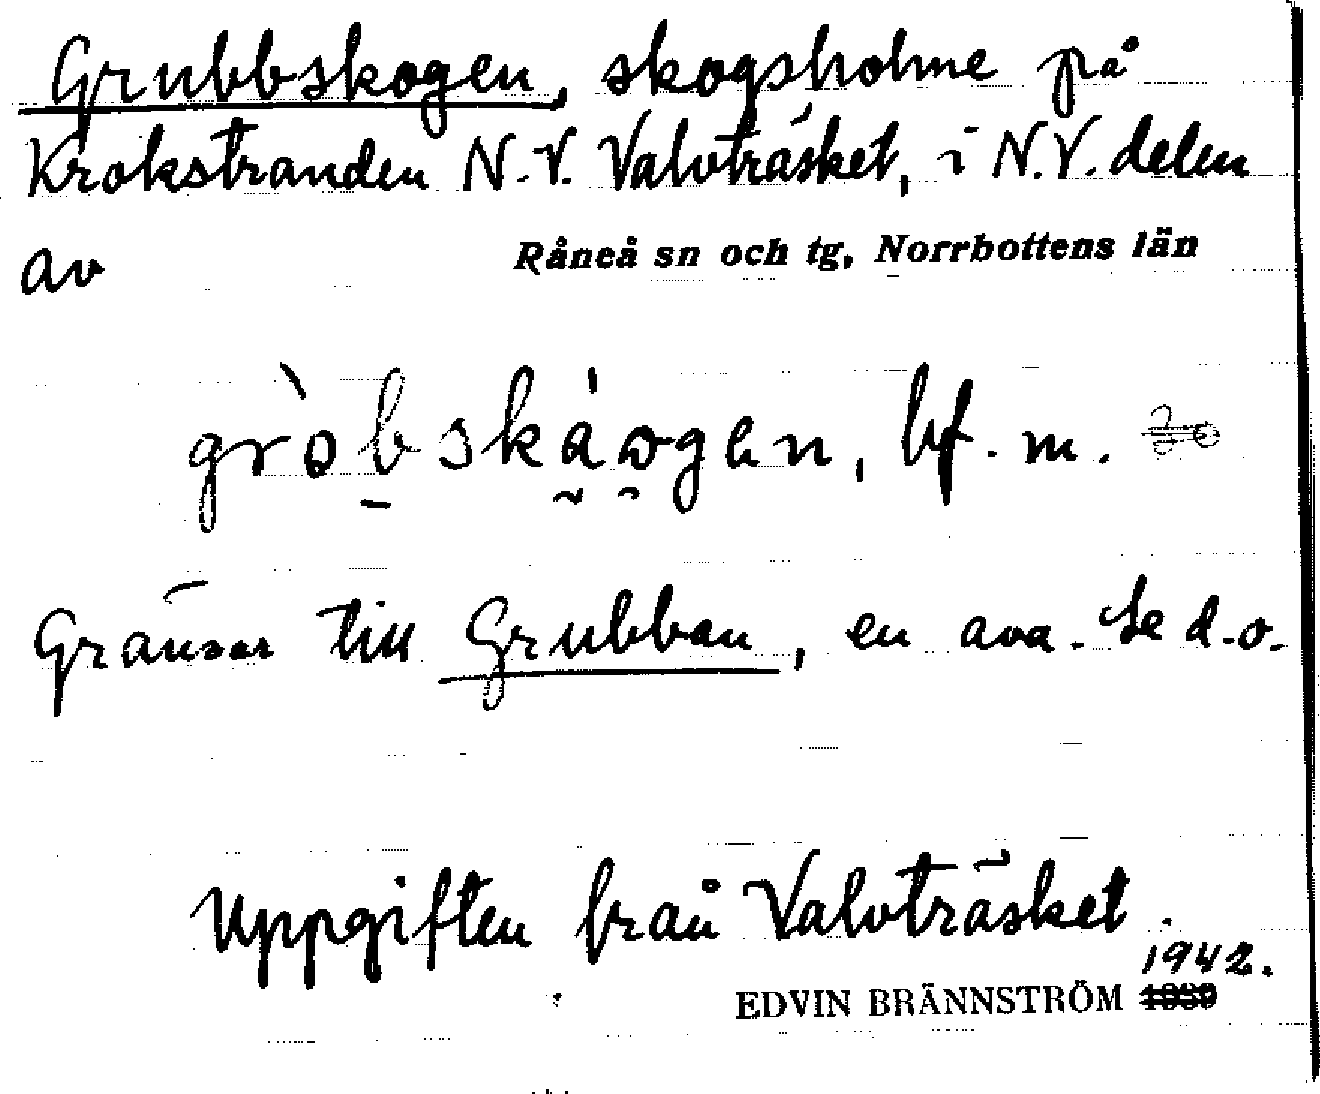 Grubbskogen, skogsholme på
Krokstranden N.V. Valvträsket, i N.V. delen
av Råneå sn och tg, Norrbottens län
gròbskáogen, bf. m.
Gränsar till Grubban, en ava. Se d.o.
Uppgiften från Valvträsket.
1942.
EDVIN BRÄNNSTRÖM 1939